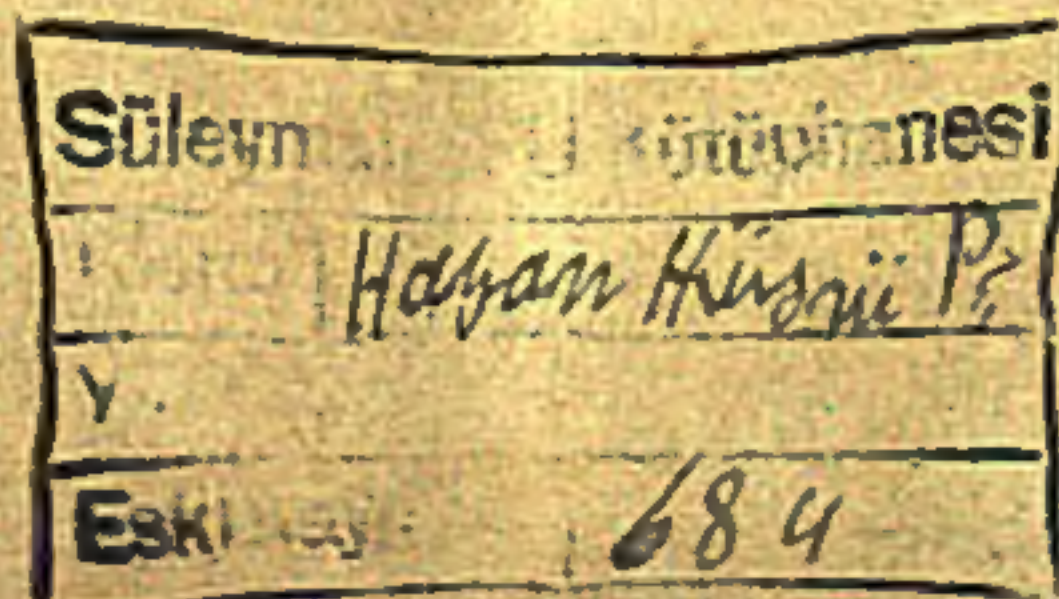 Süleym Kütüphanesi
Hasan Hüsnü Pş
Y.
Eski 684